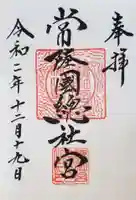 奉拝
常陸國總社宮
令和二年十二月十九日